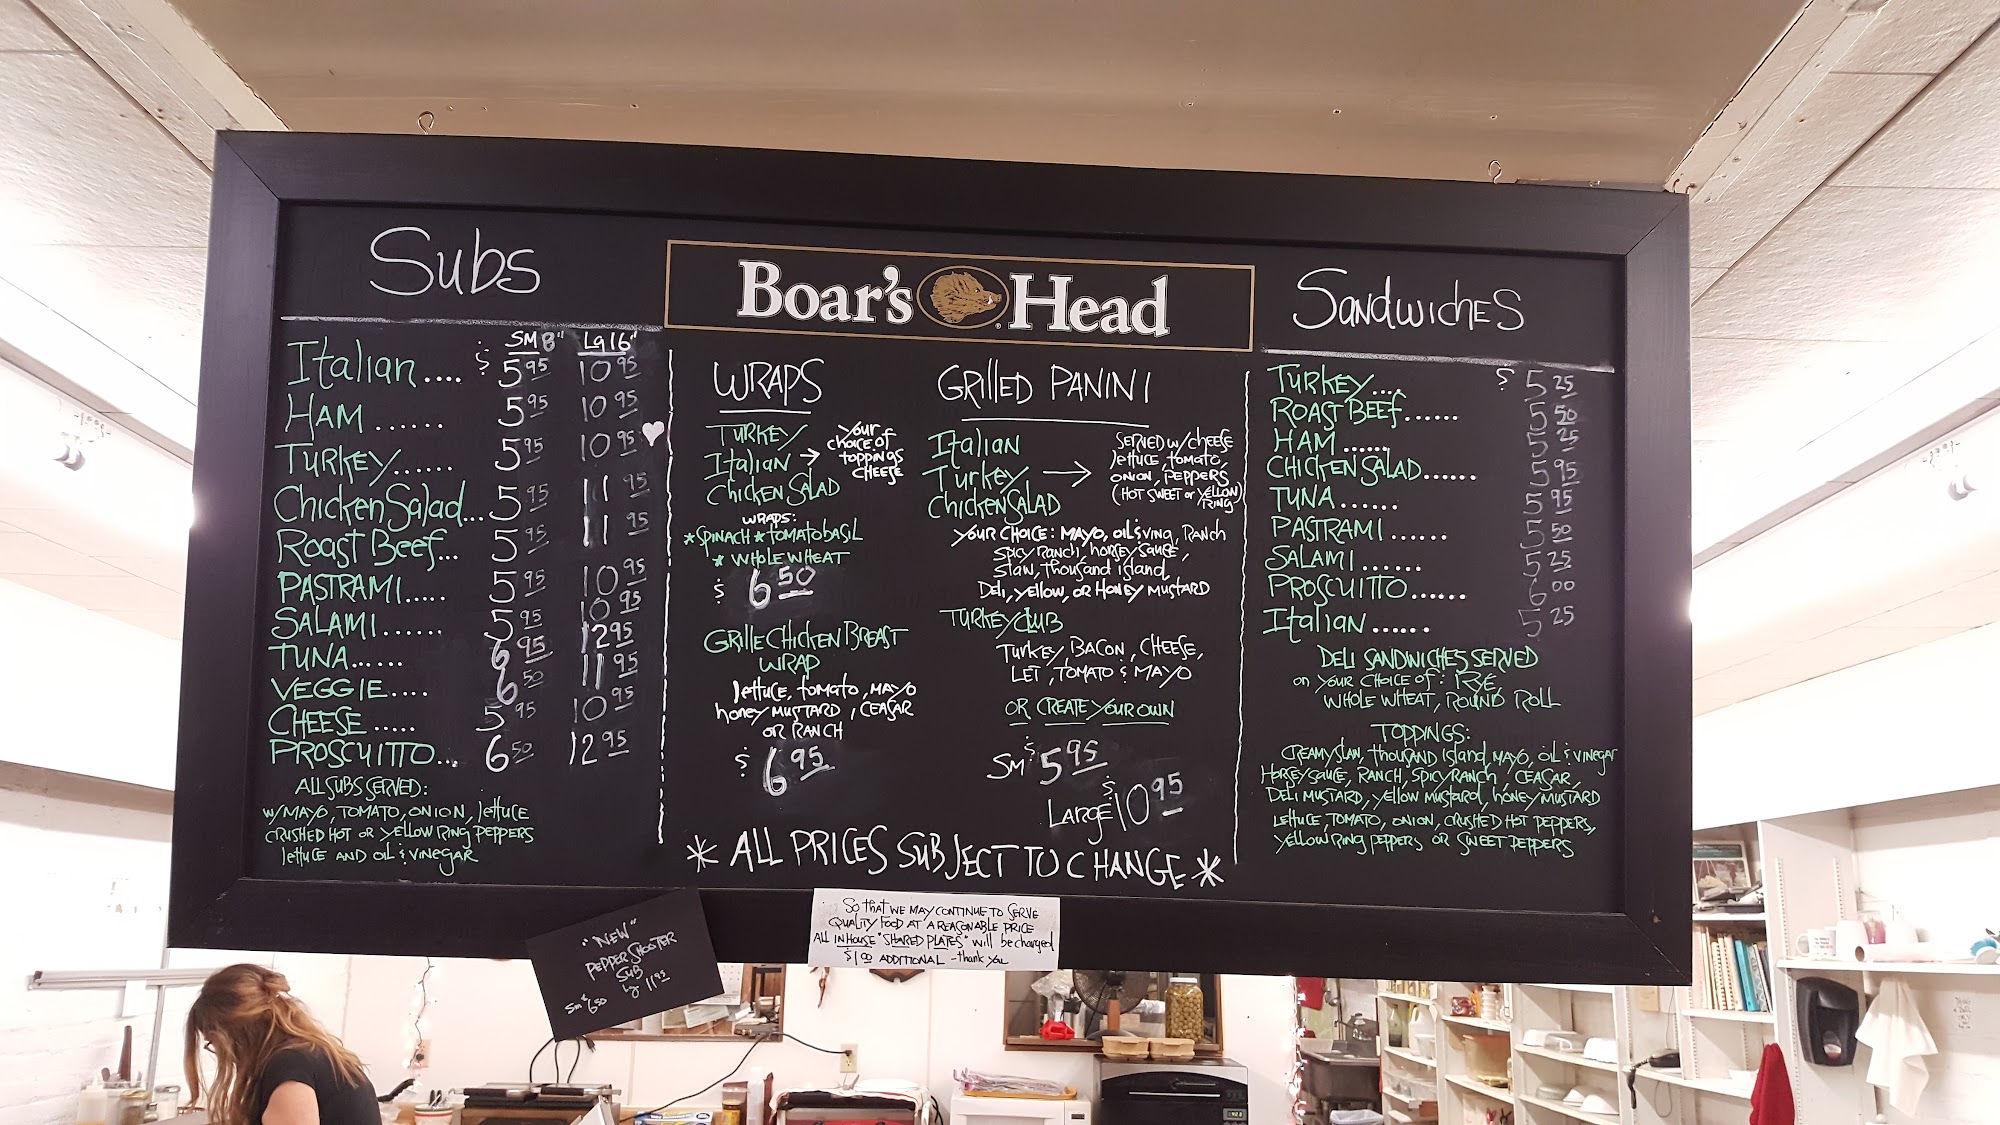 Subs
SM 8" Lg 16"
Italian.... $ 5 95 10 95
HAM ...... 5 95 10 95
TURKEY...... 5 95 10 95
Chicken Salad... 5 95 11 95
Roast Beef... 5 95 11 95
PASTRAMI..... 5 95 10 95
SALAMI...... 5 95 10 95
TUNA...... 6 95 12 95
VEGGIE..... 6 50 11 95
CHEESE ..... 5 95 10 95
PROSCUITTO... 6 50 12 95
ALL SUBS SERVED:
w/MAYO, TOMATO, ONION, lettuce
CRUSHED HOT OR YELLOW RING PEPPERS
lettuce AND OIL & VINEGAR
Boar's Head
WRAPS
TURKEY
Italian →
CHICKEN SALAD
your
choice of
toppings
CHEESE
WRAPS:
*SPINACH *TOMATO BASIL
* WHOLE WHEAT
$ 6 50
GRILLE CHICKEN BREAST
WRAP
lettuce, tomato, MAYO
honey MUSTARD, CEASAR
OR RANCH
$ 6 95
GRILLED PANINI
Italian
Turkey →
CHICKEN SALAD
SERVED w/cheese
lettuce, tomato,
ONION, PEPPERS
(HOT SWEET or YELLOW
RING)
YOUR CHOICE: MAYO, OIL & VING, RANCH
SPICY RANCH, HORSEY SAUCE,
Slaw, Thousand island,
Deli, yellow, or HONEY MUSTARD
TURKEY CLUB
Turkey, BACON, CHEESE,
LET, TOMATO & MAYO
OR CREATE YOUR OWN
SM $ 5 95
LARGE $ 10 95
* ALL PRICES SUBJECT TO CHANGE *
SANDWICHES
TURKEY.... $ 5 25
ROAST BEEF...... 5 50
HAM ...... 5 25
CHICKEN SALAD...... 5 95
TUNA...... 5 95
PASTRAMI...... 5 50
SALAMI...... 5 25
PROSCUITTO...... 6 00
Italian...... 5 25
DELI SANDWICHES SERVED
on YOUR CHOICE OF: RYE,
WHOLE WHEAT, ROUND ROLL
TOPPINGS:
CREAMY SLAW, THOUSAND ISLAND, MAYO, OIL & VINEGAR
HORSEY SAUCE, RANCH, SPICY RANCH, CEASAR,
DELI MUSTARD, YELLOW MUSTARD, HONEY MUSTARD
LETTUCE, TOMATO, ONION, CRUSHED HOT PEPPERS,
YELLOW RING PEPPERS OR SWEET PEPPERS
"NEW"
PEPPER SHOOTER
SUB
Sm $6.50 Lg 11 95
So that we may continue to serve
QUALITY FOOD AT A REASONABLE PRICE
All IN HOUSE "SHARED PLATES" will be charged
$1 00 ADDITIONAL - thank you